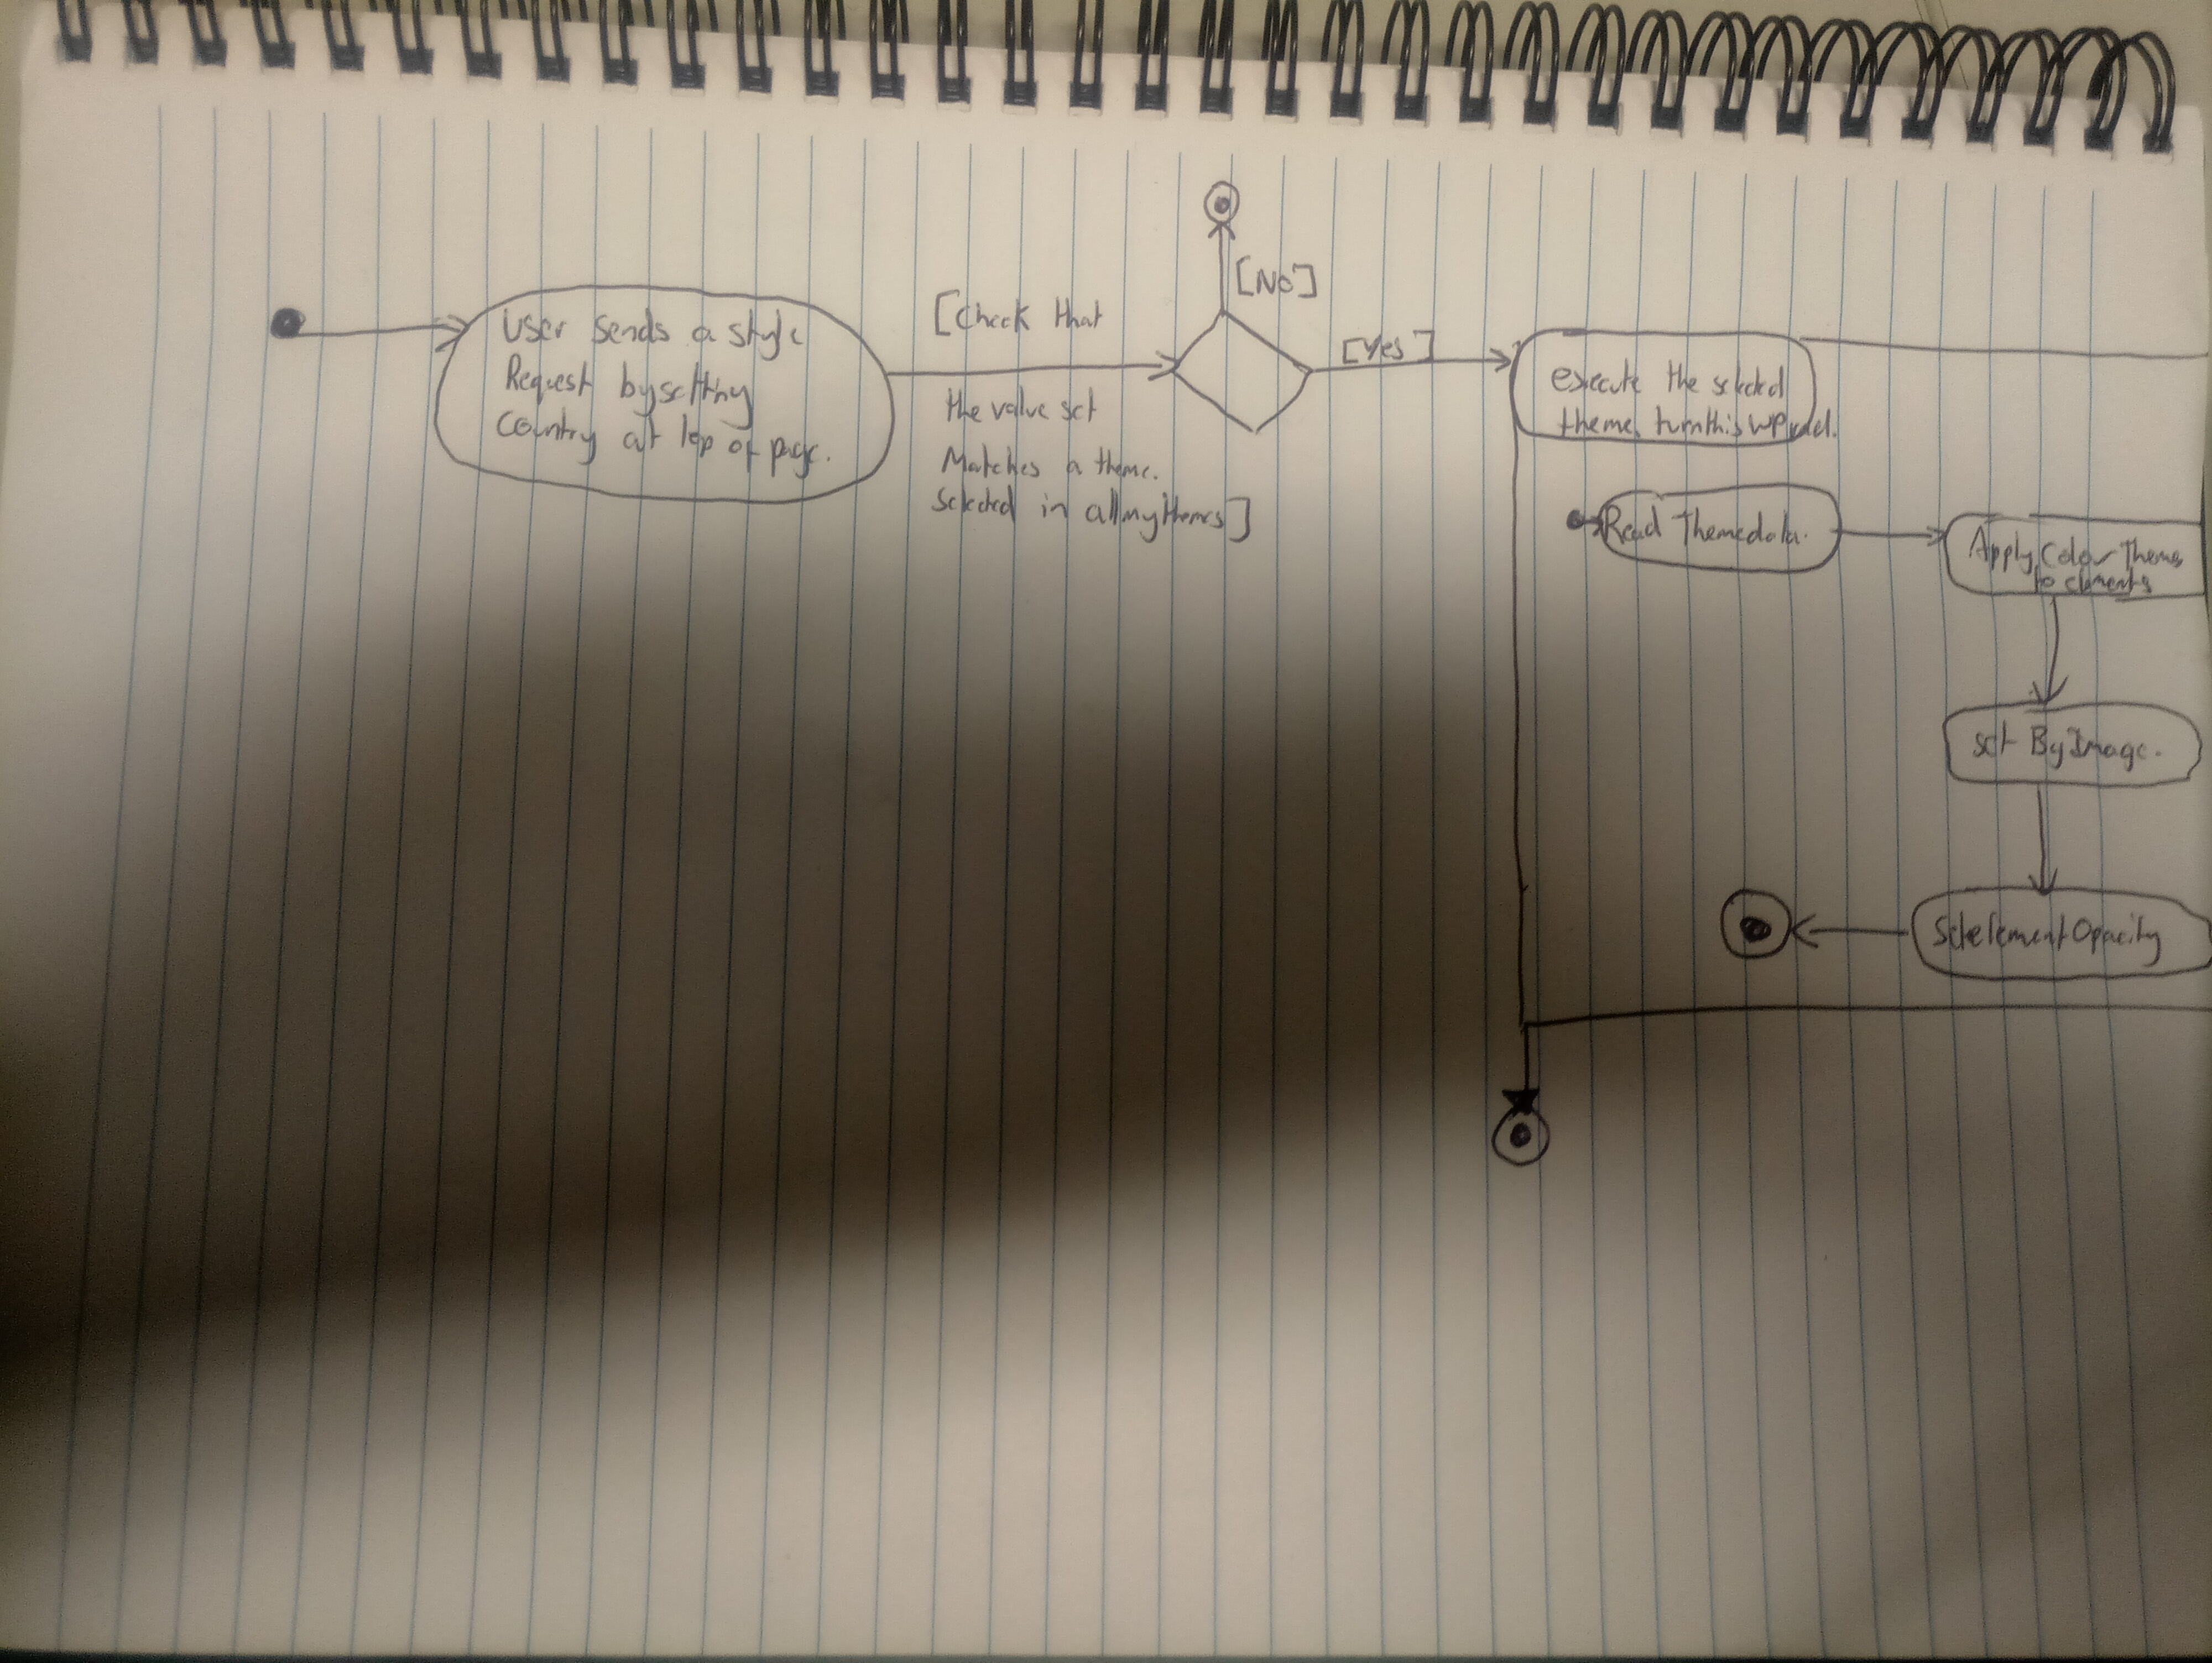 User sends a style
Request by setting
Country at top of page.
[Check that
the value set
Matches a theme.
Selected in allmythemes]
[No]
[Yes]
execute the selected
theme, turn this
Read Themedata.
Apply Color Theme
to elements
set ByImage.
SetelementOpacity